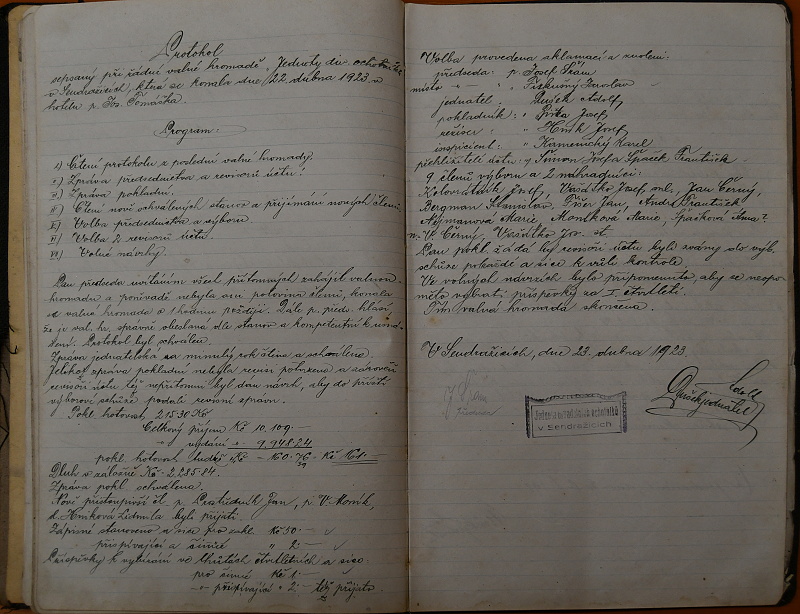 Protokol
sepsaný při řádné valné hromadě „Jednoty div. ochotníků
v Sendražicích, která se konala dne 22. dubna 1923 v
hotelu p. Jos. Tomáška.
Program:
I) Čtení protokolu z poslední valné hromady.
II) Zpráva předsednictva a revisorů účtů.
III) Zpráva pokladní.
IV) Čtení nově schválených stanov a přijímání nových členů.
V) Volba předsednictva a výboru.
VI) Volba 2 revisorů účtů.
VII) Volné návrhy.
Pan předseda uvítáním všech přítomných zahájil valnou
hromadu a poněvadž nebyla ani polovina členů, konala
se valná hromada o 1 hodinu později. Dále p. před. hlásí
že je val. hr. správně obeslána dle stanov a kompetentní k
Protokol byl schválen.
Zpráva jednatelská za minulý rok čtena a schválena.
Jelikož zpráva pokladní nebyla revisí potvrzena a zároveň
revisoři účtů též nepřítomni byl dán návrh, aby do příští
výborové schůze podali revisní zprávu.
Pokl. hotovost 215·30 Kč
Celkový příjem Kč 10.109.—
" vydání " 9.948·24
pokl. hotovost tudíž Kč 160·76 Kč 161.—
Dluh v záložně Kč 2.285·84.
Zpráva pokl. schválena.
Nově přistoupivší čl. p. Prostředník Jan, p. V. Moník,
sl. Hníková Lidmila byli přijati.
Zápisné stanoveno a sice pro zakl. Kč 50.—
přispívající a činné " 2.—
Příspěvky k vybírání ve lhůtách čtvrtletních a sice:
pro činné Kč 1.—
" přispívající " 2.— též přijato.
Volba provedena aklamací a zvoleni:
předseda: p. Josef Šrám
místo " " Jaroslav
jednatel: " Rušek Adolf
pokladník: " Josef
revisor " Hník Josef
inspicient: " Kamenický Karel
přehližitelé účtů: p. Šimon Josef a Špaček František
9 členů výboru a 2 náhradníci:
Kolovrátník Josef, Věšátko Josef ml., Jan Černý,
Bergman Stanislav, Jan, František
Nejmanová Marie, Moníková Marie, Špačková Anna
n. V. Černý, Věšátko Jos. st.
Pan pokl. žádá by revisoři účtů byli zváni do výb.
schůze pokaždé a sice k vůli kontrole
Ve volných návrzích bylo připomenuto, aby se neopo-
mělo vybrati příspěvky za I. čtvrtletí.
Tím valná hromada skončena.
V Sendražicích, dne 23. dubna 1923.
J. Šrám
předseda
Jednota divadelních ochotníků
v Sendražicích
Adolf
Rušek jednatel